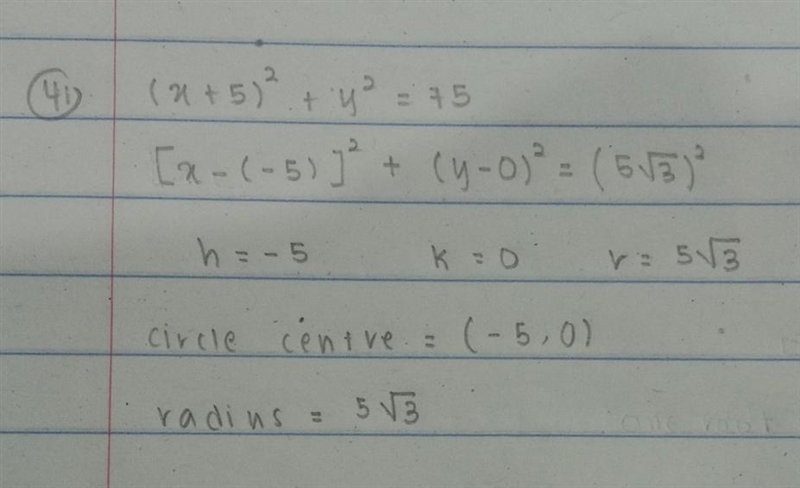 41) (x + 5)² + y² = 75
[x - (-5)]² + (y - 0)² = (5√3)²
h = -5 k = 0 r = 5√3
circle centre = (-5, 0)
radius = 5√3